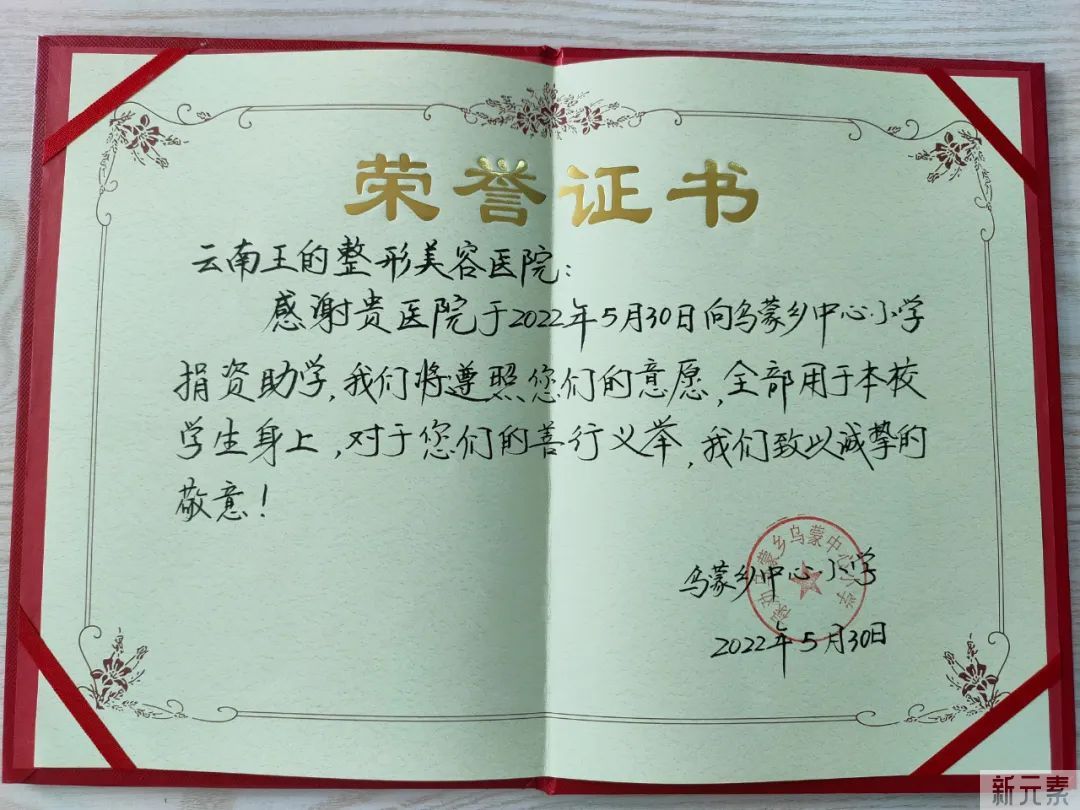 荣誉证书
云南王的整形美容医院:
感谢贵医院于2022年5月30日向乌蒙乡中心小学
捐资助学,我们将遵照您们的意愿,全部用于本校
学生身上,对于您们的善行义举,我们致以诚挚的
敬意!
禄劝乌蒙乡乌蒙中心小学
乌蒙乡中心小学
2022年5月30日
新元素